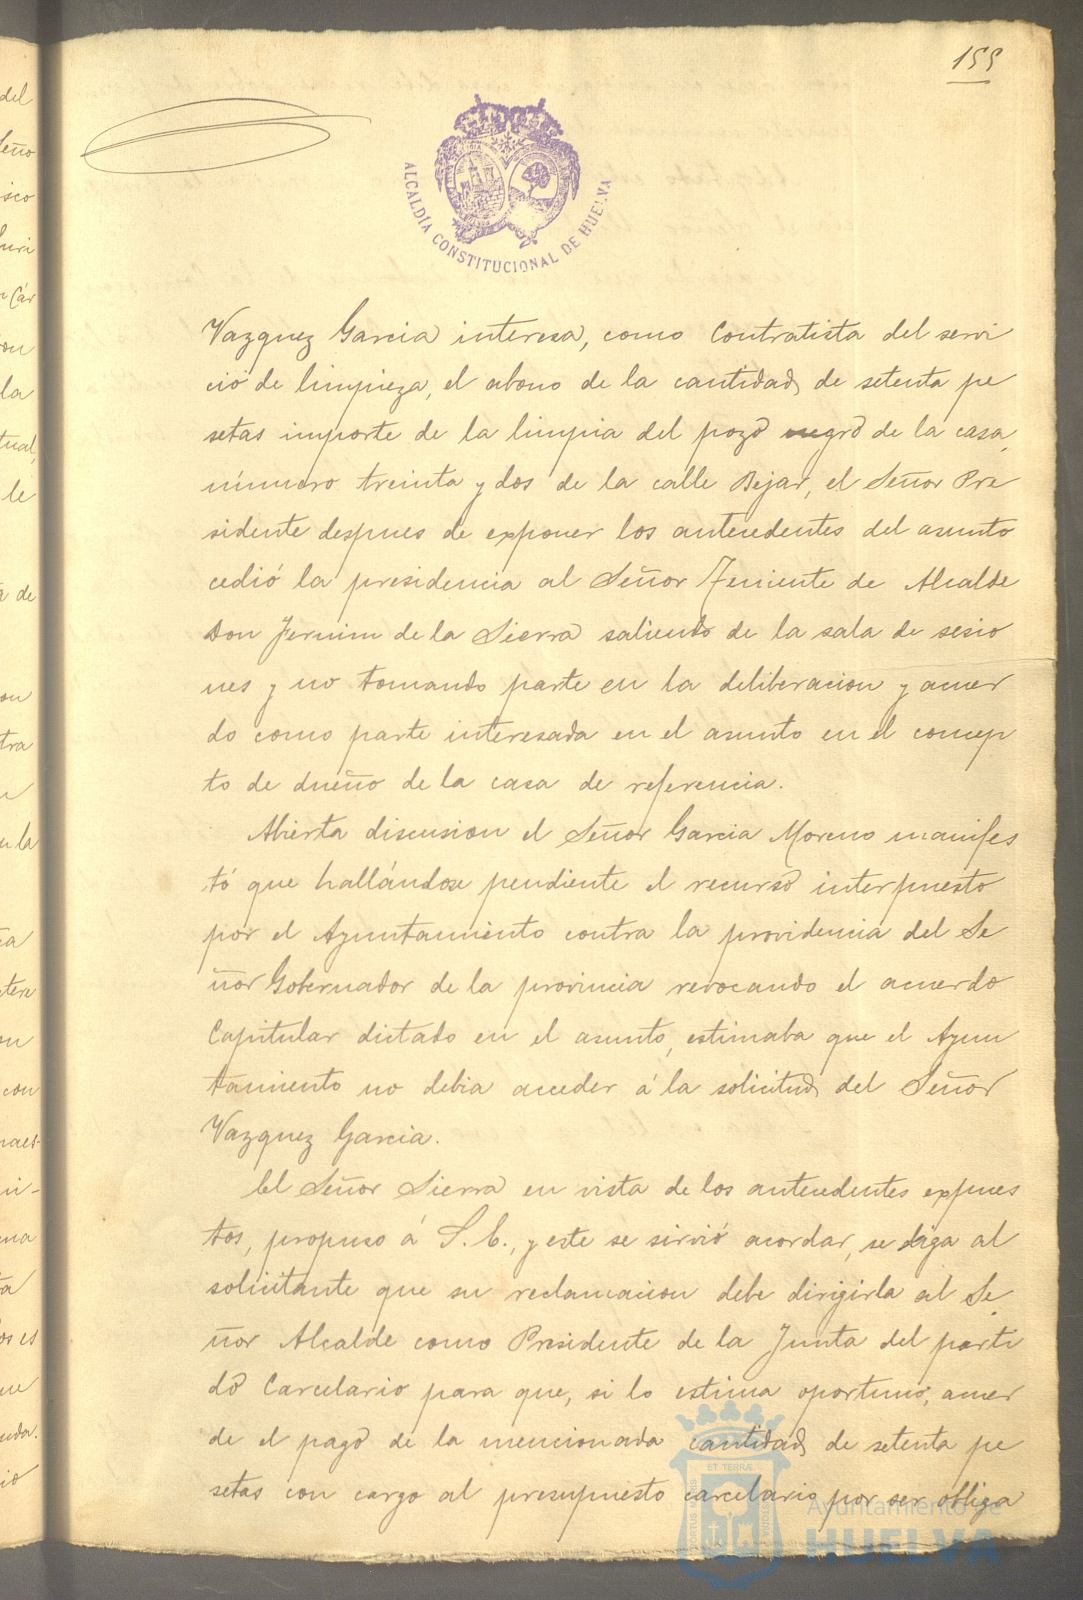 155
ALCALDÍA CONSTITUCIONAL DE HUELVA
Vazquez Garcia interesa, como Contratista del servi
ció de limpieza, el abono de la cantidad de setenta pe
setas importe de la limpia del pozo negro de la casa
número treinta y dos de la calle Bejar, el Señor Pre
sidente despues de exponer los antecedentes del asunto
cedió la presidencia al Señor Teniente de Alcalde
Don de la Sierra saliendo de la sala de sesio
nes y no tomando parte en la deliberacion y acuer
do como parte interesada en el asunto en el concep
to de dueño de la casa de referencia.
Abierta discusion el Señor Garcia Moreno manifes
tó que hallándose pendiente el recurso interpuesto
por el Ayuntamiento contra la providencia del Se
ñor Gobernador de la provincia revocando el acuerdo
Capitular dictado en el asunto, estimaba que el Ayun
tamiento no debia acceder á la solicitud del Señor
Vazquez Garcia.
El Señor Sierra en vista de los antecedentes expues
tos, propuso á S. E., y este se sirvió acordar, se diga al
solicitante que su reclamacion debe dirigirla al Se
ñor Alcalde como Presidente de la Junta del parti
do Carcelario para que, si lo estima oportuno, acuer
de el pago de la mencionada cantidad de setenta pe
setas con cargo al presupuesto carcelario por ser obliga
del
la
tual,
le
de
con
tra
con
ET TERRÆ
PORTUS MARIS
CUSTODIA
Ayuntamiento de
HUELVA